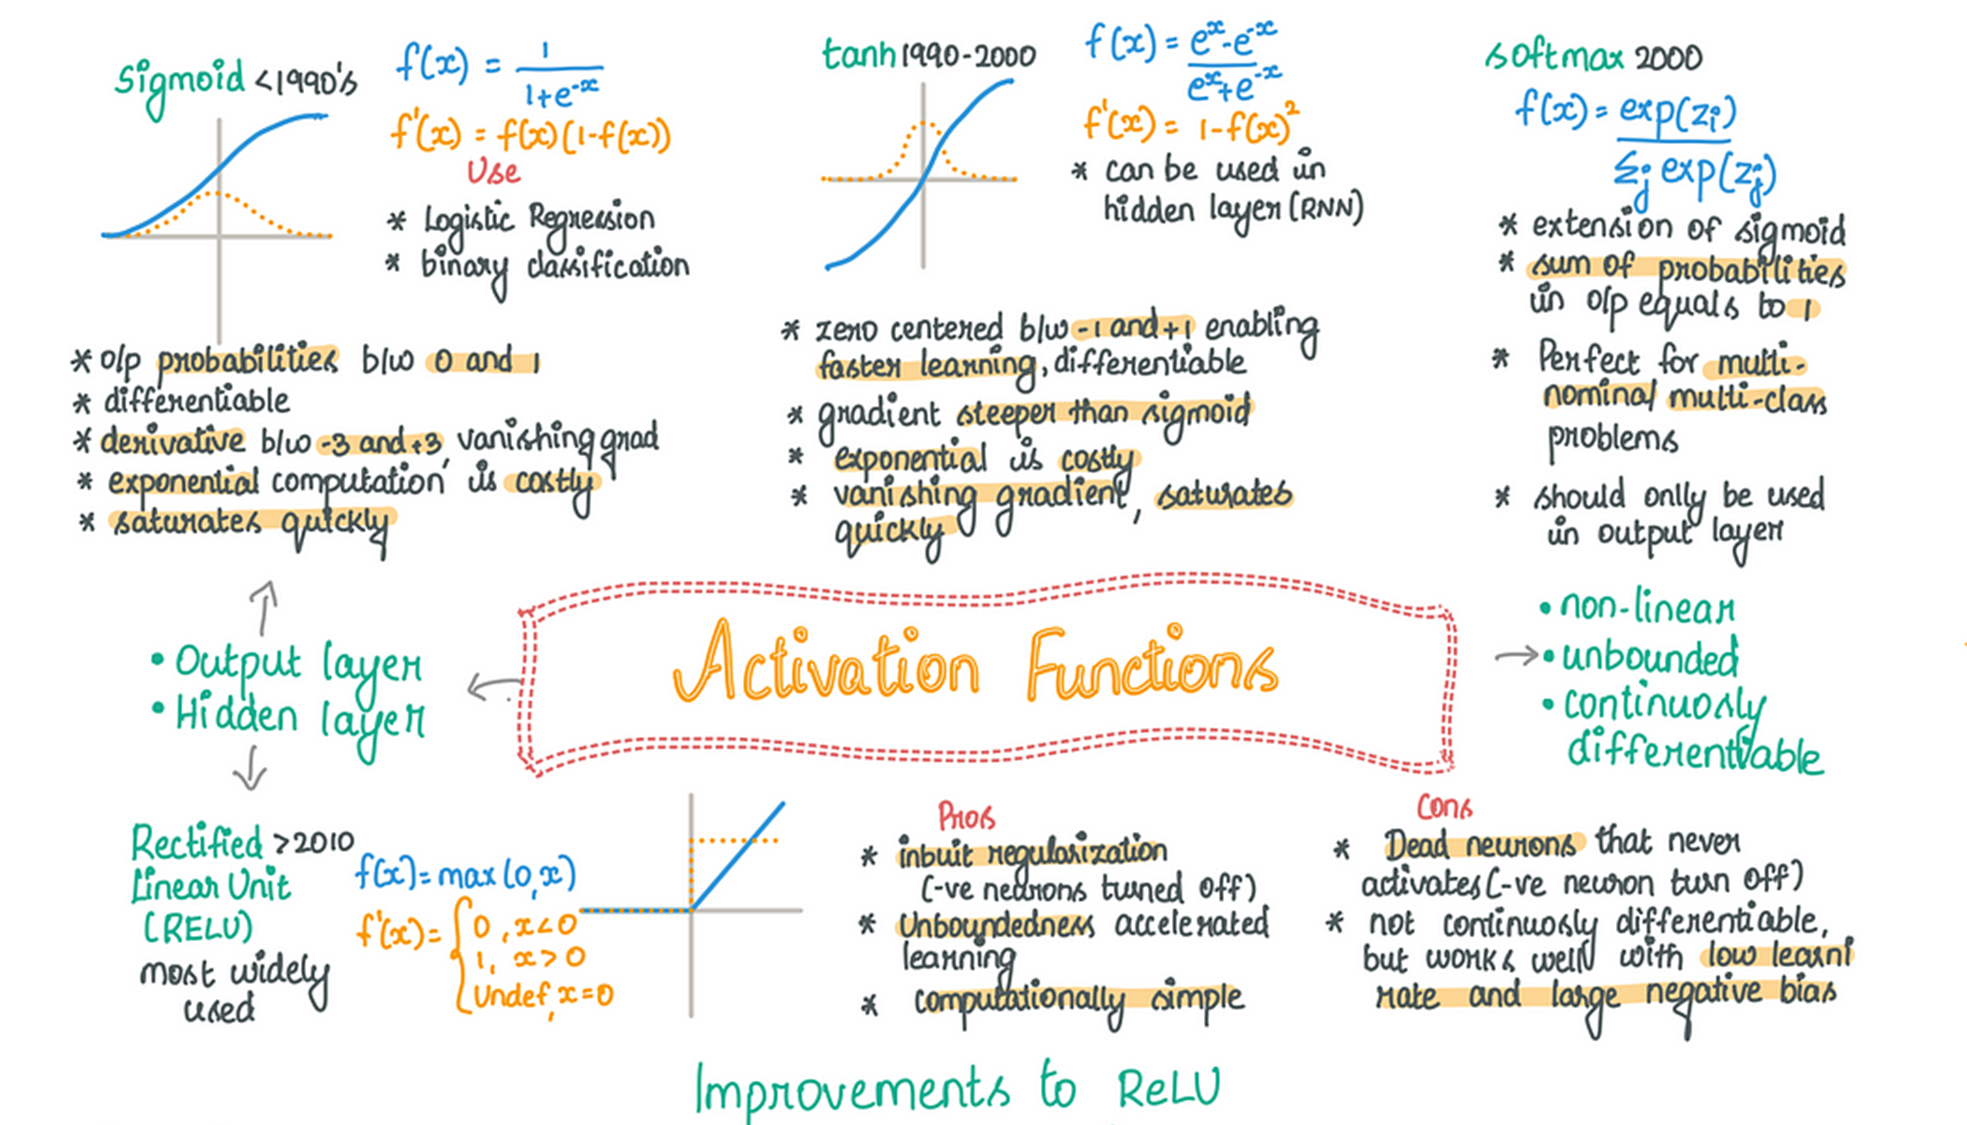 Sigmoid <1990's
f(x) = 1
1+e^-x
f'(x) = f(x)(1-f(x))
Use
* Logistic Regression
* binary classification
* o/p probabilities b/w 0 and 1
* differentiable
* derivative b/w -3 and +3, vanishing grad
* exponential computation is costly
* saturates quickly
tanh 1990-2000
f(x) = e^x-e^-x
e^x+e^-x
f'(x) = 1-f(x)^2
* can be used in
hidden layer (RNN)
* zero centered b/w -1 and +1 enabling
faster learning, differentiable
* gradient steeper than sigmoid
* exponential is costly
* vanishing gradient, saturates
quickly
softmax 2000
f(x) = exp(zi)
Σj exp(zj)
* extension of sigmoid
* sum of probabilities
in o/p equals to 1
* Perfect for multi-
nominal multi-class
problems
* should onlly be used
in output layer
• Output layer
• Hidden layer
Activation Functions
• non-linear
• unbounded
• continuosly
differentiable
Rectified >2010
Linear Unit
(RELU)
most widely
used
f(x) = max(0,x)
f'(x) = { 0, x<0
1, x>0
Undef, x=0
Pros
* inbuit regularization
(-ve neurons turned off)
* Unboundedness accelerated
learning
* computationally simple
Cons
* Dead neurons that never
activates (-ve neuron turn off)
* not continuosly differentiable,
but works well with low learni
rate and large negative bias
Improvements to ReLU